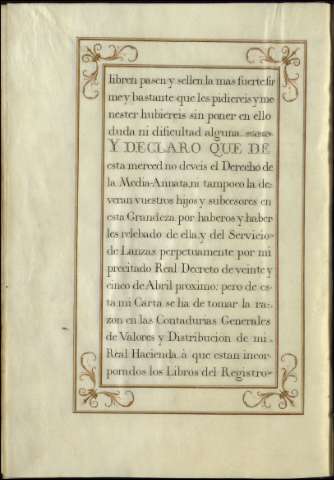 libren pasen y sellen la mas fuerte fir
me y bastante que les pidiereis y me
nester hubiereis sin poner en ello
duda ni dificultad alguna.
Y DECLARO QUE DE
esta merced no deveis el Derecho de
la Media-Annata, ni tampoco la de-
veran vuestros hijos y subcesores en
esta Grandeza por haberos y haber
les relebado de ella, y del Servicio
de Lanzas perpetuamente por mi
precitado Real Decreto de veinte y
cinco de Abril proximo: pero de es-
ta mi Carta se ha de tomar la ra-
zon en las Contadurias Generales
de Valores y Distribucion de mi
Real Hacienda à que estan incor-
porados los Libros del Registro